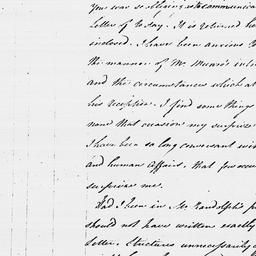 You was so obliging as to communicat
Letter of to day. It is returned he
inclosed. I have been anxious to
the manner of Mr Munro's
and the circumstances which at
his reception. I find some things
none that occasion my surprize
I have been so long conversant wi
and human affairs, that few occu
surprize me.
Had I been in Mr Randolph's p
should not have written exactly
letter. Strictures unnecessarily